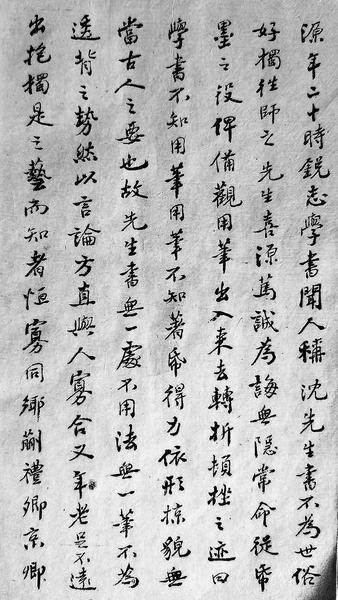 源年二十時銳志學書聞人稱沈先生書不為世俗
好獨往師之先生喜源篤誠為誨無隱常命從帋
墨之役俾備觀用筆出入來去轉折頓挫之迹曰
學書不知用筆用筆不知著帋得力依形掠貌無
當古人之要也故先生書無一處不用法無一筆不為
透背之勢然以言論方直與人寡合又年老足不遠
出抱獨是之藝而知者恒寡同鄉蒯禮卿京卿